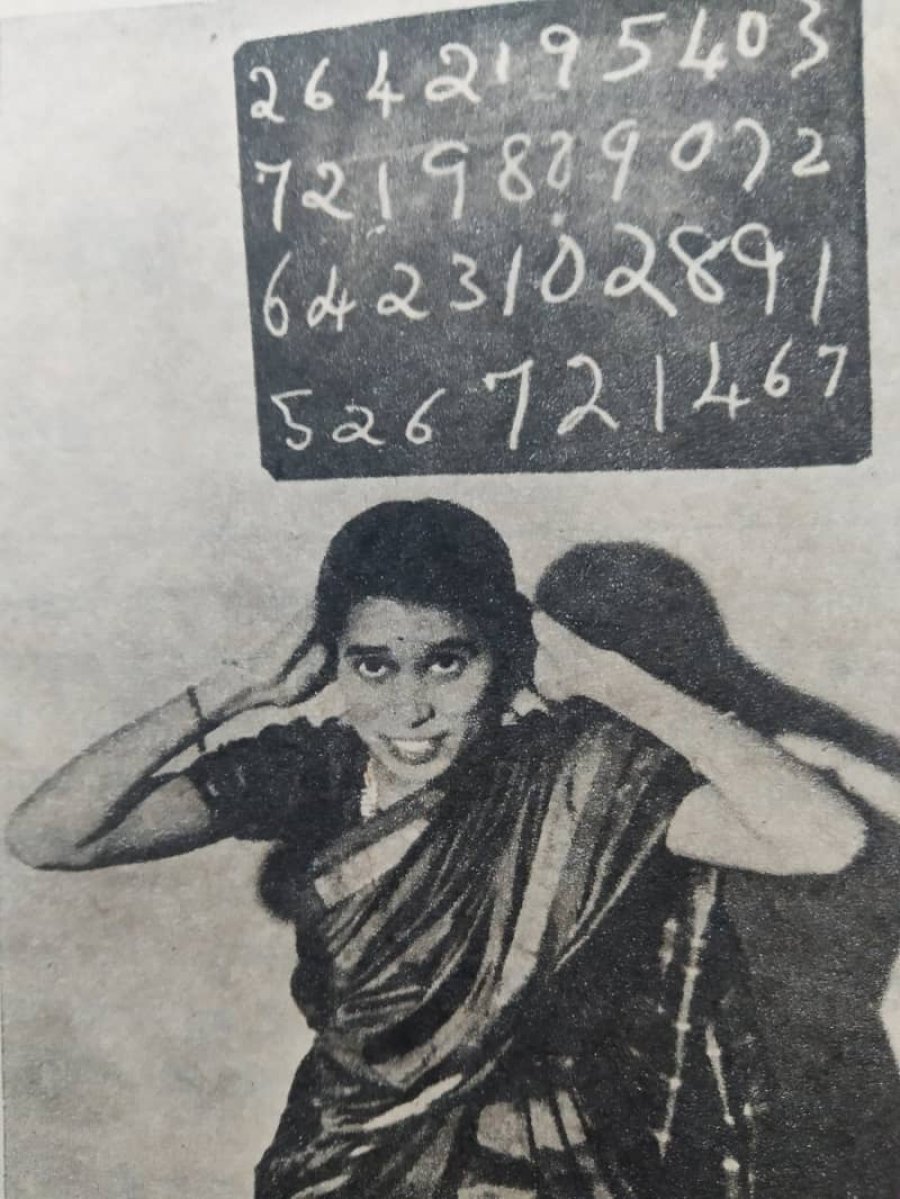 2642195403
7219889072
6423102891
526721467